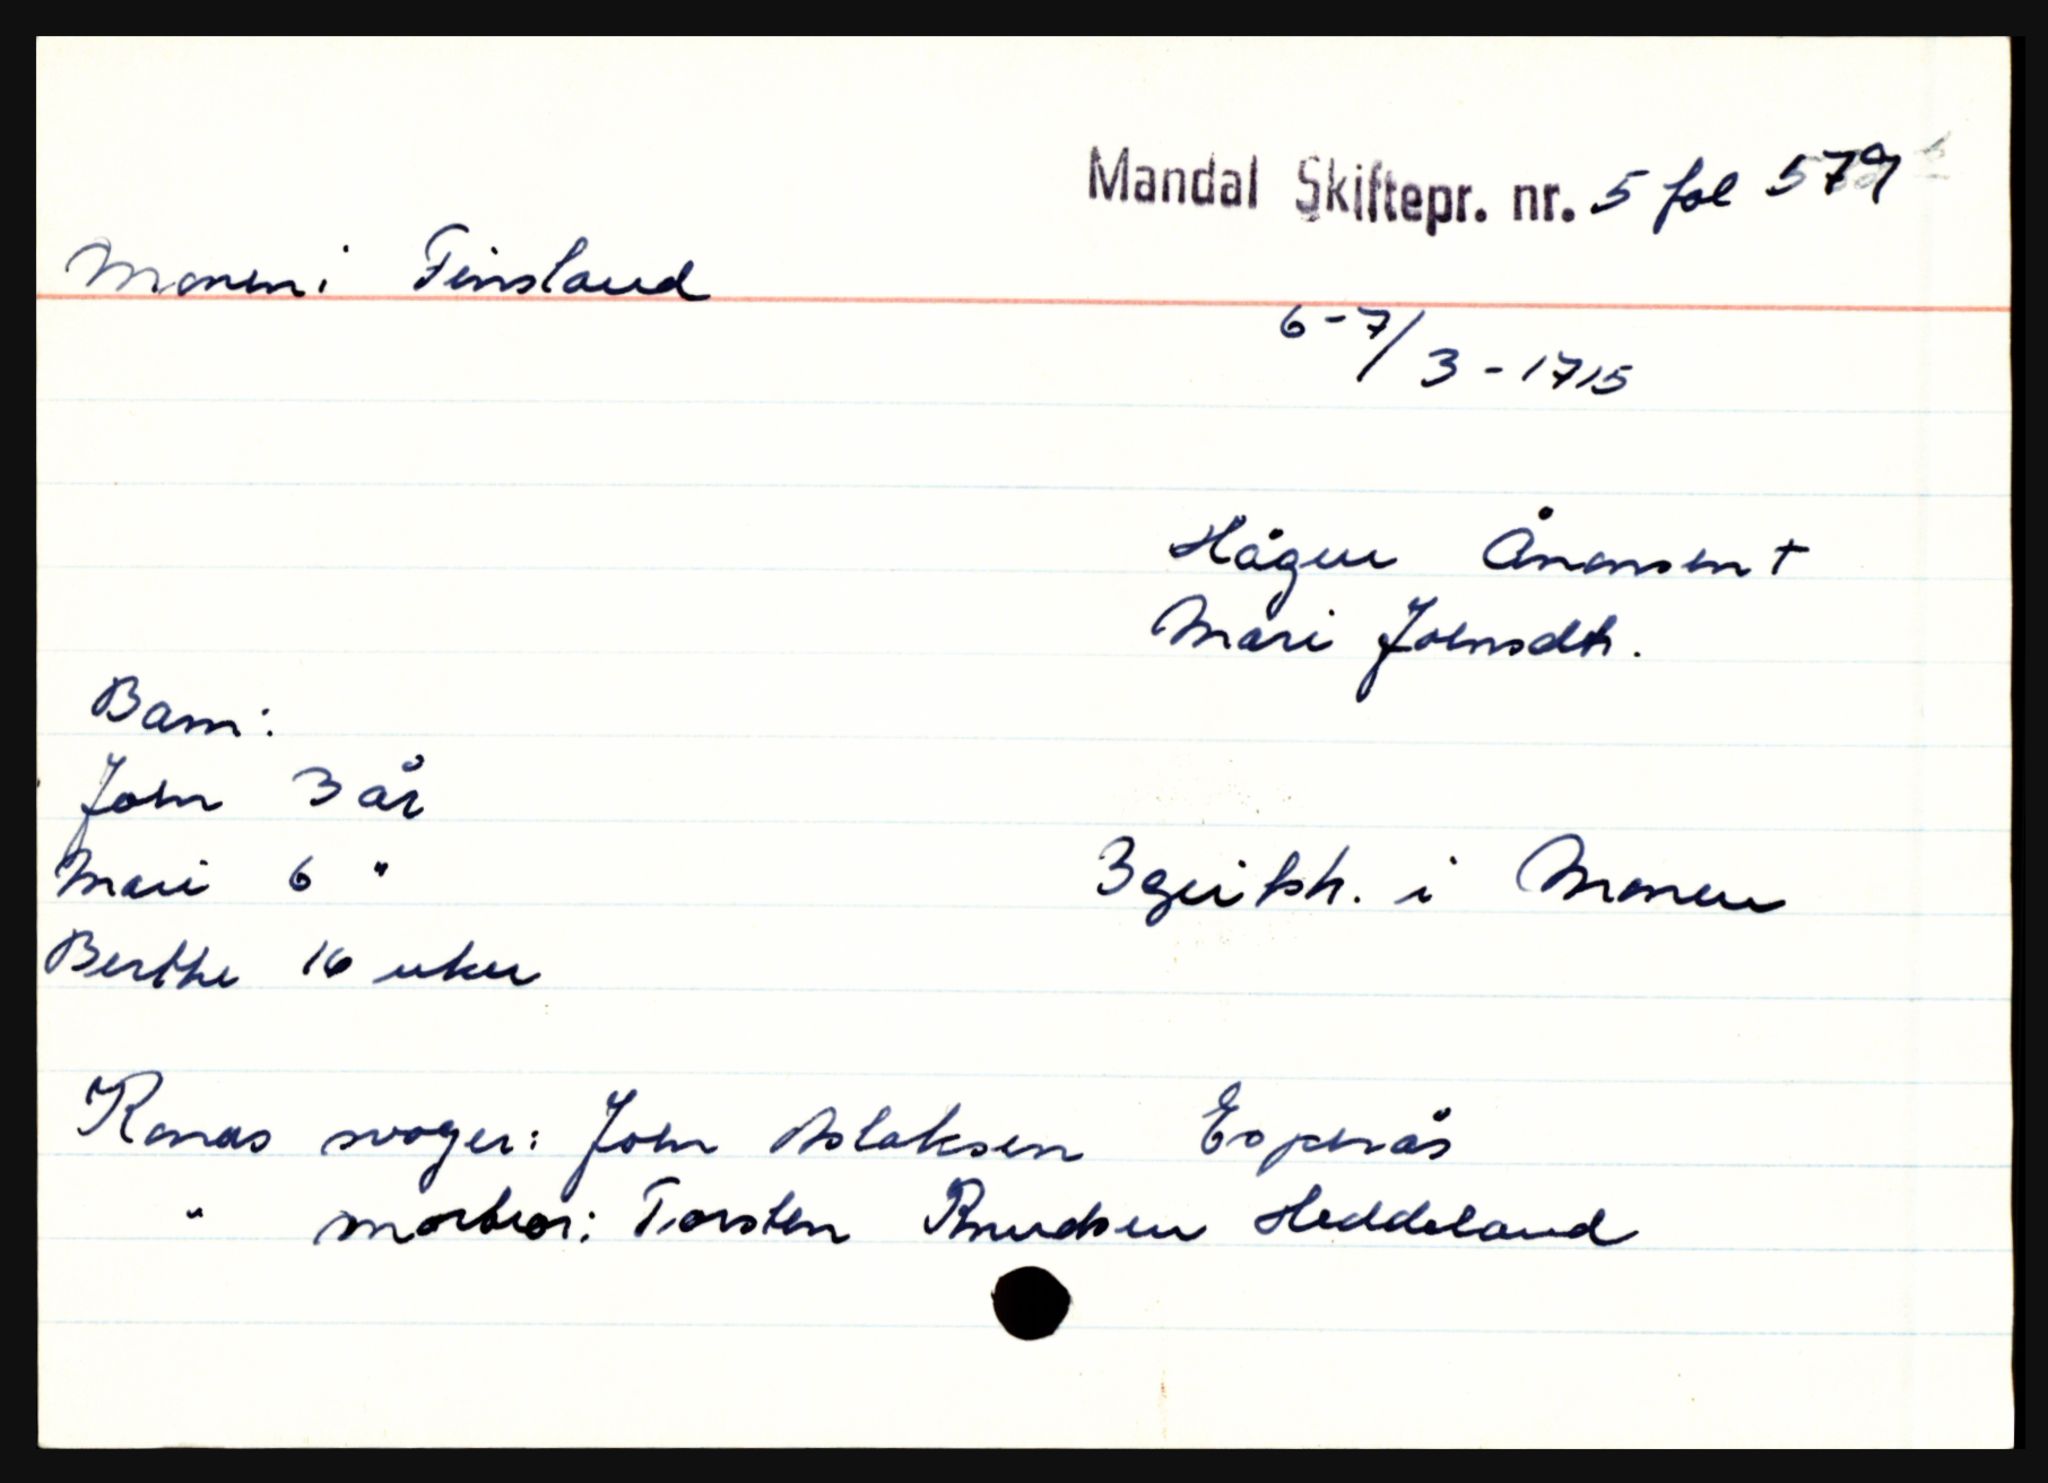 Mandal Skiftepr. nr. 5 fol 579
Monen i Finsland
6-7/3-1715
Hågen Ånonsen +
Mari Johnsdtr.
Barn:
John 3 år
Mari 6 "
3 geitsk. i Monen
Berthe 16 uker
Konas svoger: John Aslaksen Espenås
" morbror: Torsten Knudsen Heddeland